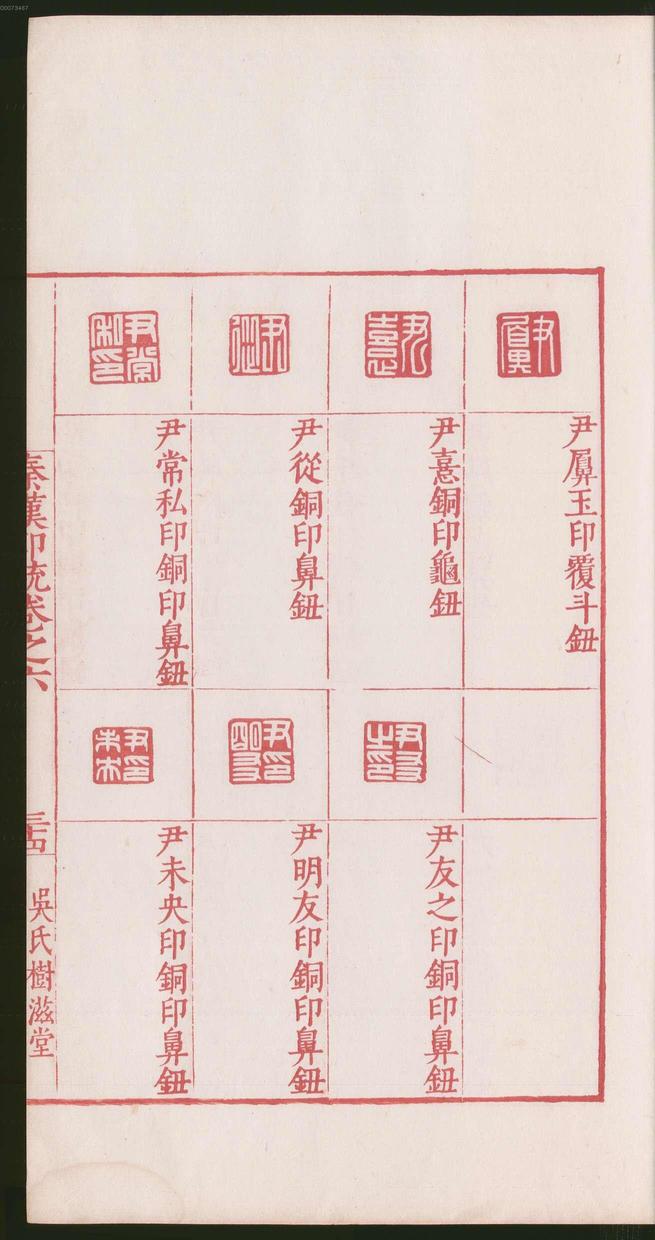 00073467
尹屓玉印覆斗鈕
尹憙銅印龜鈕
尹從銅印鼻鈕
尹常私印銅印鼻鈕
尹友之印銅印鼻鈕
尹明友印銅印鼻鈕
尹未央印銅印鼻鈕
秦漢印統卷之六
三十四
吳氏樹滋堂